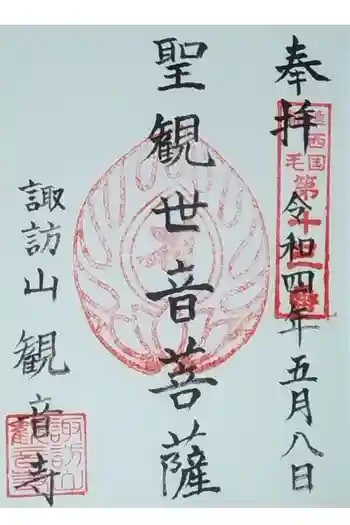 奉拝 令和四年五月八日
聖観世音菩薩
諏訪山 観音寺
西国
第
諏訪山
観音寺